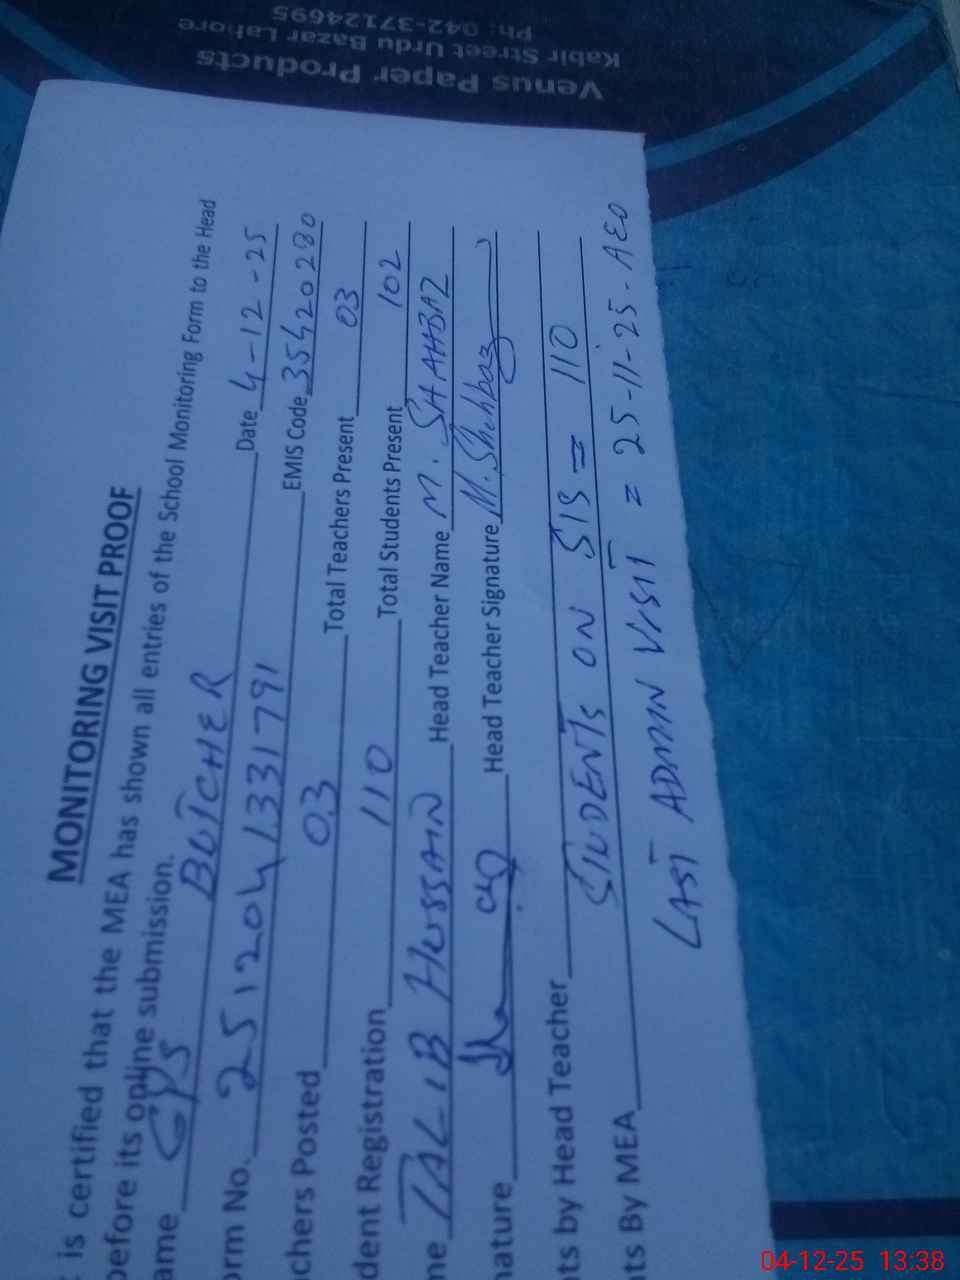 Venus Paper Products
Kabir Street Urdu Bazar Lahore
Ph: 042-37124695
MONITORING VISIT PROOF
is certified that the MEA has shown all entries of the School Monitoring Form to the Head
before its online submission.
ame GPS BUTCHER Date 4-12-25
orm No. 2512041331791 EMIS Code 35420280
chers Posted 03 Total Teachers Present 03
dent Registration 110 Total Students Present 102
me TALIB HUSSAIN Head Teacher Name M. SHAHBAZ
nature Head Teacher Signature M. Shehbaz
nts by Head Teacher
STUDENTS ON SIS = 110
nts By MEA
LAST ADMIN VISIT = 25-11-25. AEO
04-12-25 13:38